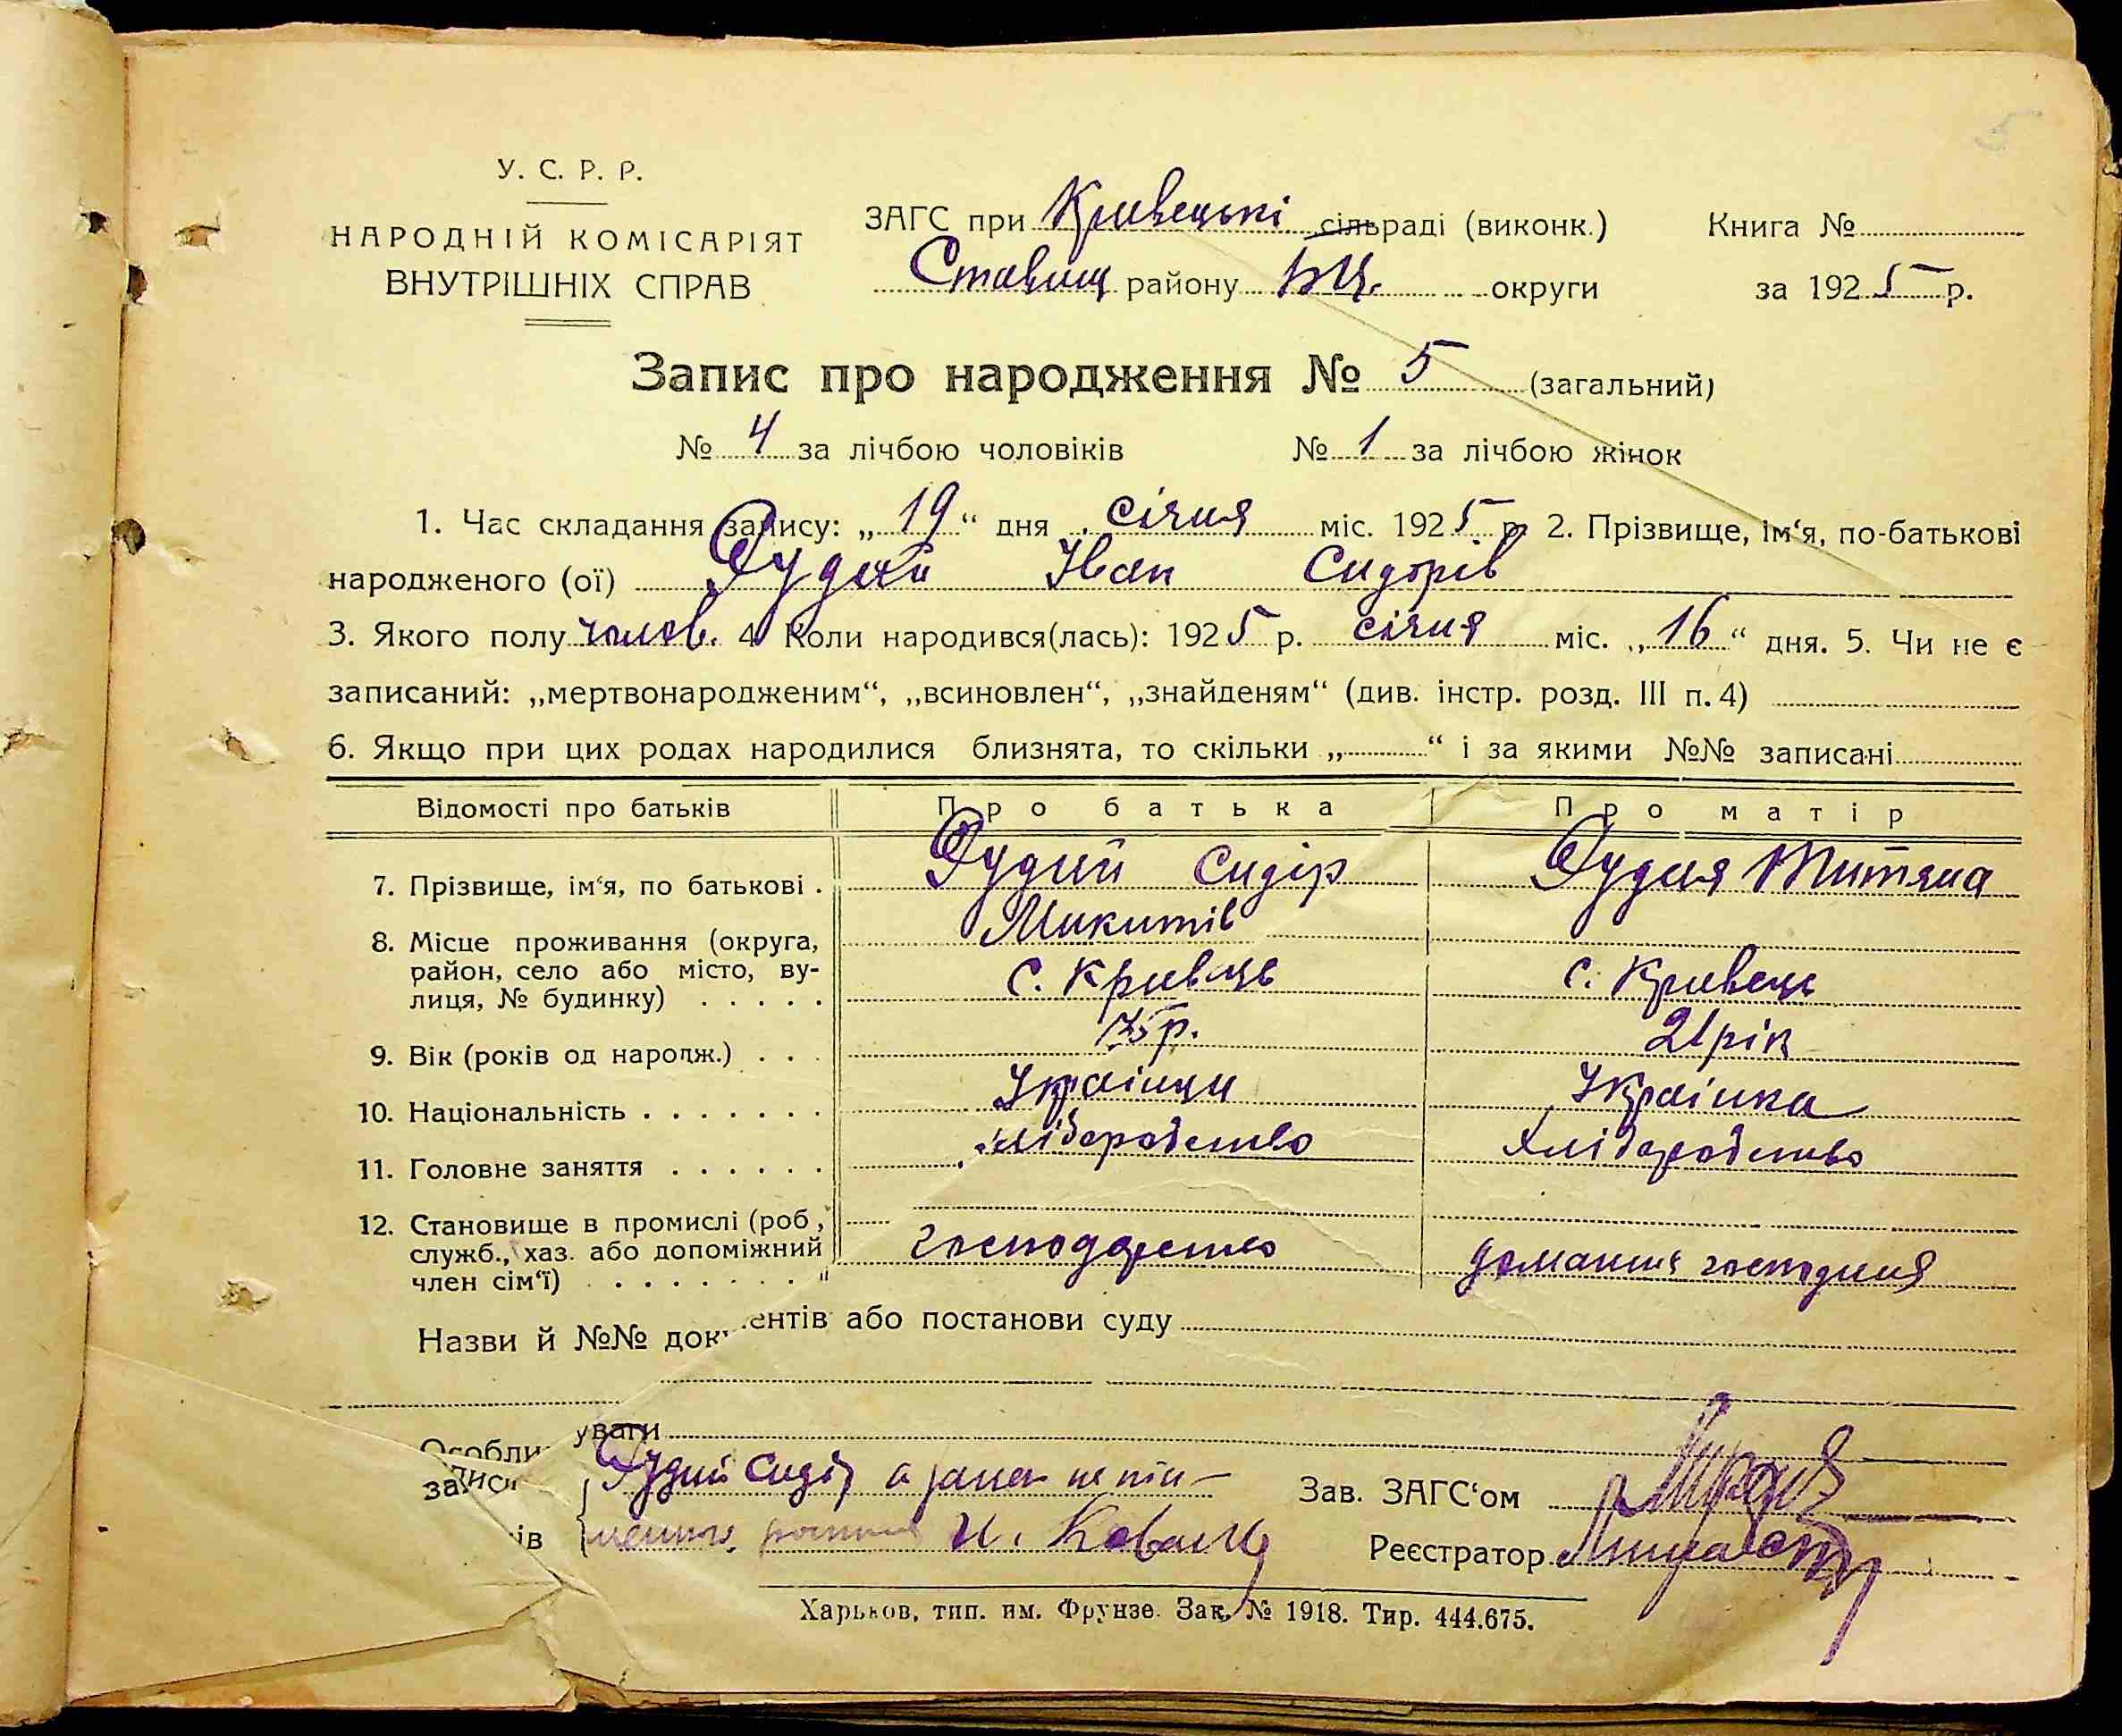 5
У. С. Р. Р.
НАРОДНІЙ КОМІСАРІЯТ
ВНУТРІШНІХ СПРАВ
ЗАГС при Кривецькі сільраді (виконк.)
Ставищ району БЦ. округи
Книга №
за 1925 р.
Запис про народження № 5 (загальний)
№ 4 за лічбою чоловіків № 1 за лічбою жінок
1. Час складання запису: „19“ дня січня міс. 1925 р. 2. Прізвище, ім‘я, по-батькові
народженого (ої) Рудий Іван Сидорів
3. Якого полу чолов. 4. Коли народився(лась): 1925 р. січня міс. „16“ дня. 5. Чи не є
записаний: „мертвонародженим“, „всиновлен“, „знайденям“ (див. інстр. розд. III п. 4)
6. Якщо при цих родах народилися близнята, то скільки „ “ і за якими №№ записані
Відомості про батьків Про батька Про матір
7. Прізвище, ім‘я, по батькові . Рудий Сидір Рудая Титяна
Микитів
8. Місце проживання (округа,
район, село або місто, ву-
лиця, № будинку) . . . . . с. Кривець с. Кривець
9. Вік (років од народж.) . . . р. 21 рік
10. Національність . . . . . . . Українци Українка
11. Головне заняття . . . . . . хліборобство хліборобство
12. Становище в промислі (роб,
служб., хаз. або допоміжний
член сім‘ї) . . . . . . . . господарство домашня господиня
Назви й №№ док ентів або постанови суду
Особли уваги
за писи
ів
Рудий Сидір а за неписьменного И. Коваль
Зав. ЗАГС‘ом
Реєстратор
Харьков, тип. им. Фрунзе. Зак. № 1918. Тир. 444.675.